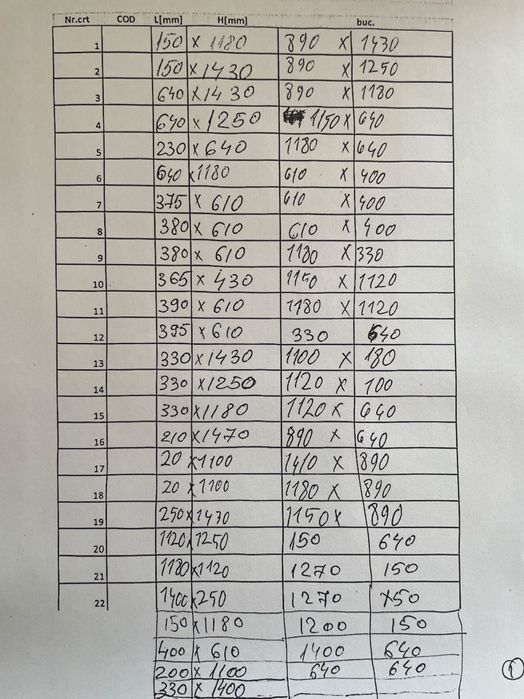 Nr.crt COD L[mm] H[mm] buc.
1 150 x 1180 890 x 1430
2 150 x 1430 890 x 1250
3 640 x 1430 890 x 1180
4 640 x 1250 1150 x 640
5 230 x 640 1180 x 640
6 640 x 1180 610 x 400
7 375 x 610 610 x 400
8 380 x 610 610 x 400
9 380 x 610 1180 x 330
10 365 x 430 1150 x 1120
11 390 x 610 1180 x 1120
12 395 x 610 330 640
13 330 x 1430 1100 x 180
14 330 x 1250 1120 x 100
15 330 x 1180 1120 x 640
16 210 x 1470 890 x 640
17 20 x 1100 1410 x 890
18 20 x 1100 1180 x 890
19 250 x 1470 1150 x 890
20 1120 x 1250 150 640
21 1180 x 1120 1270 150
22 1400 x 250 1270 150
150 x 1180 1200 150
400 x 610 1400 640
200 x 1100 640 640
330 x 1400
1